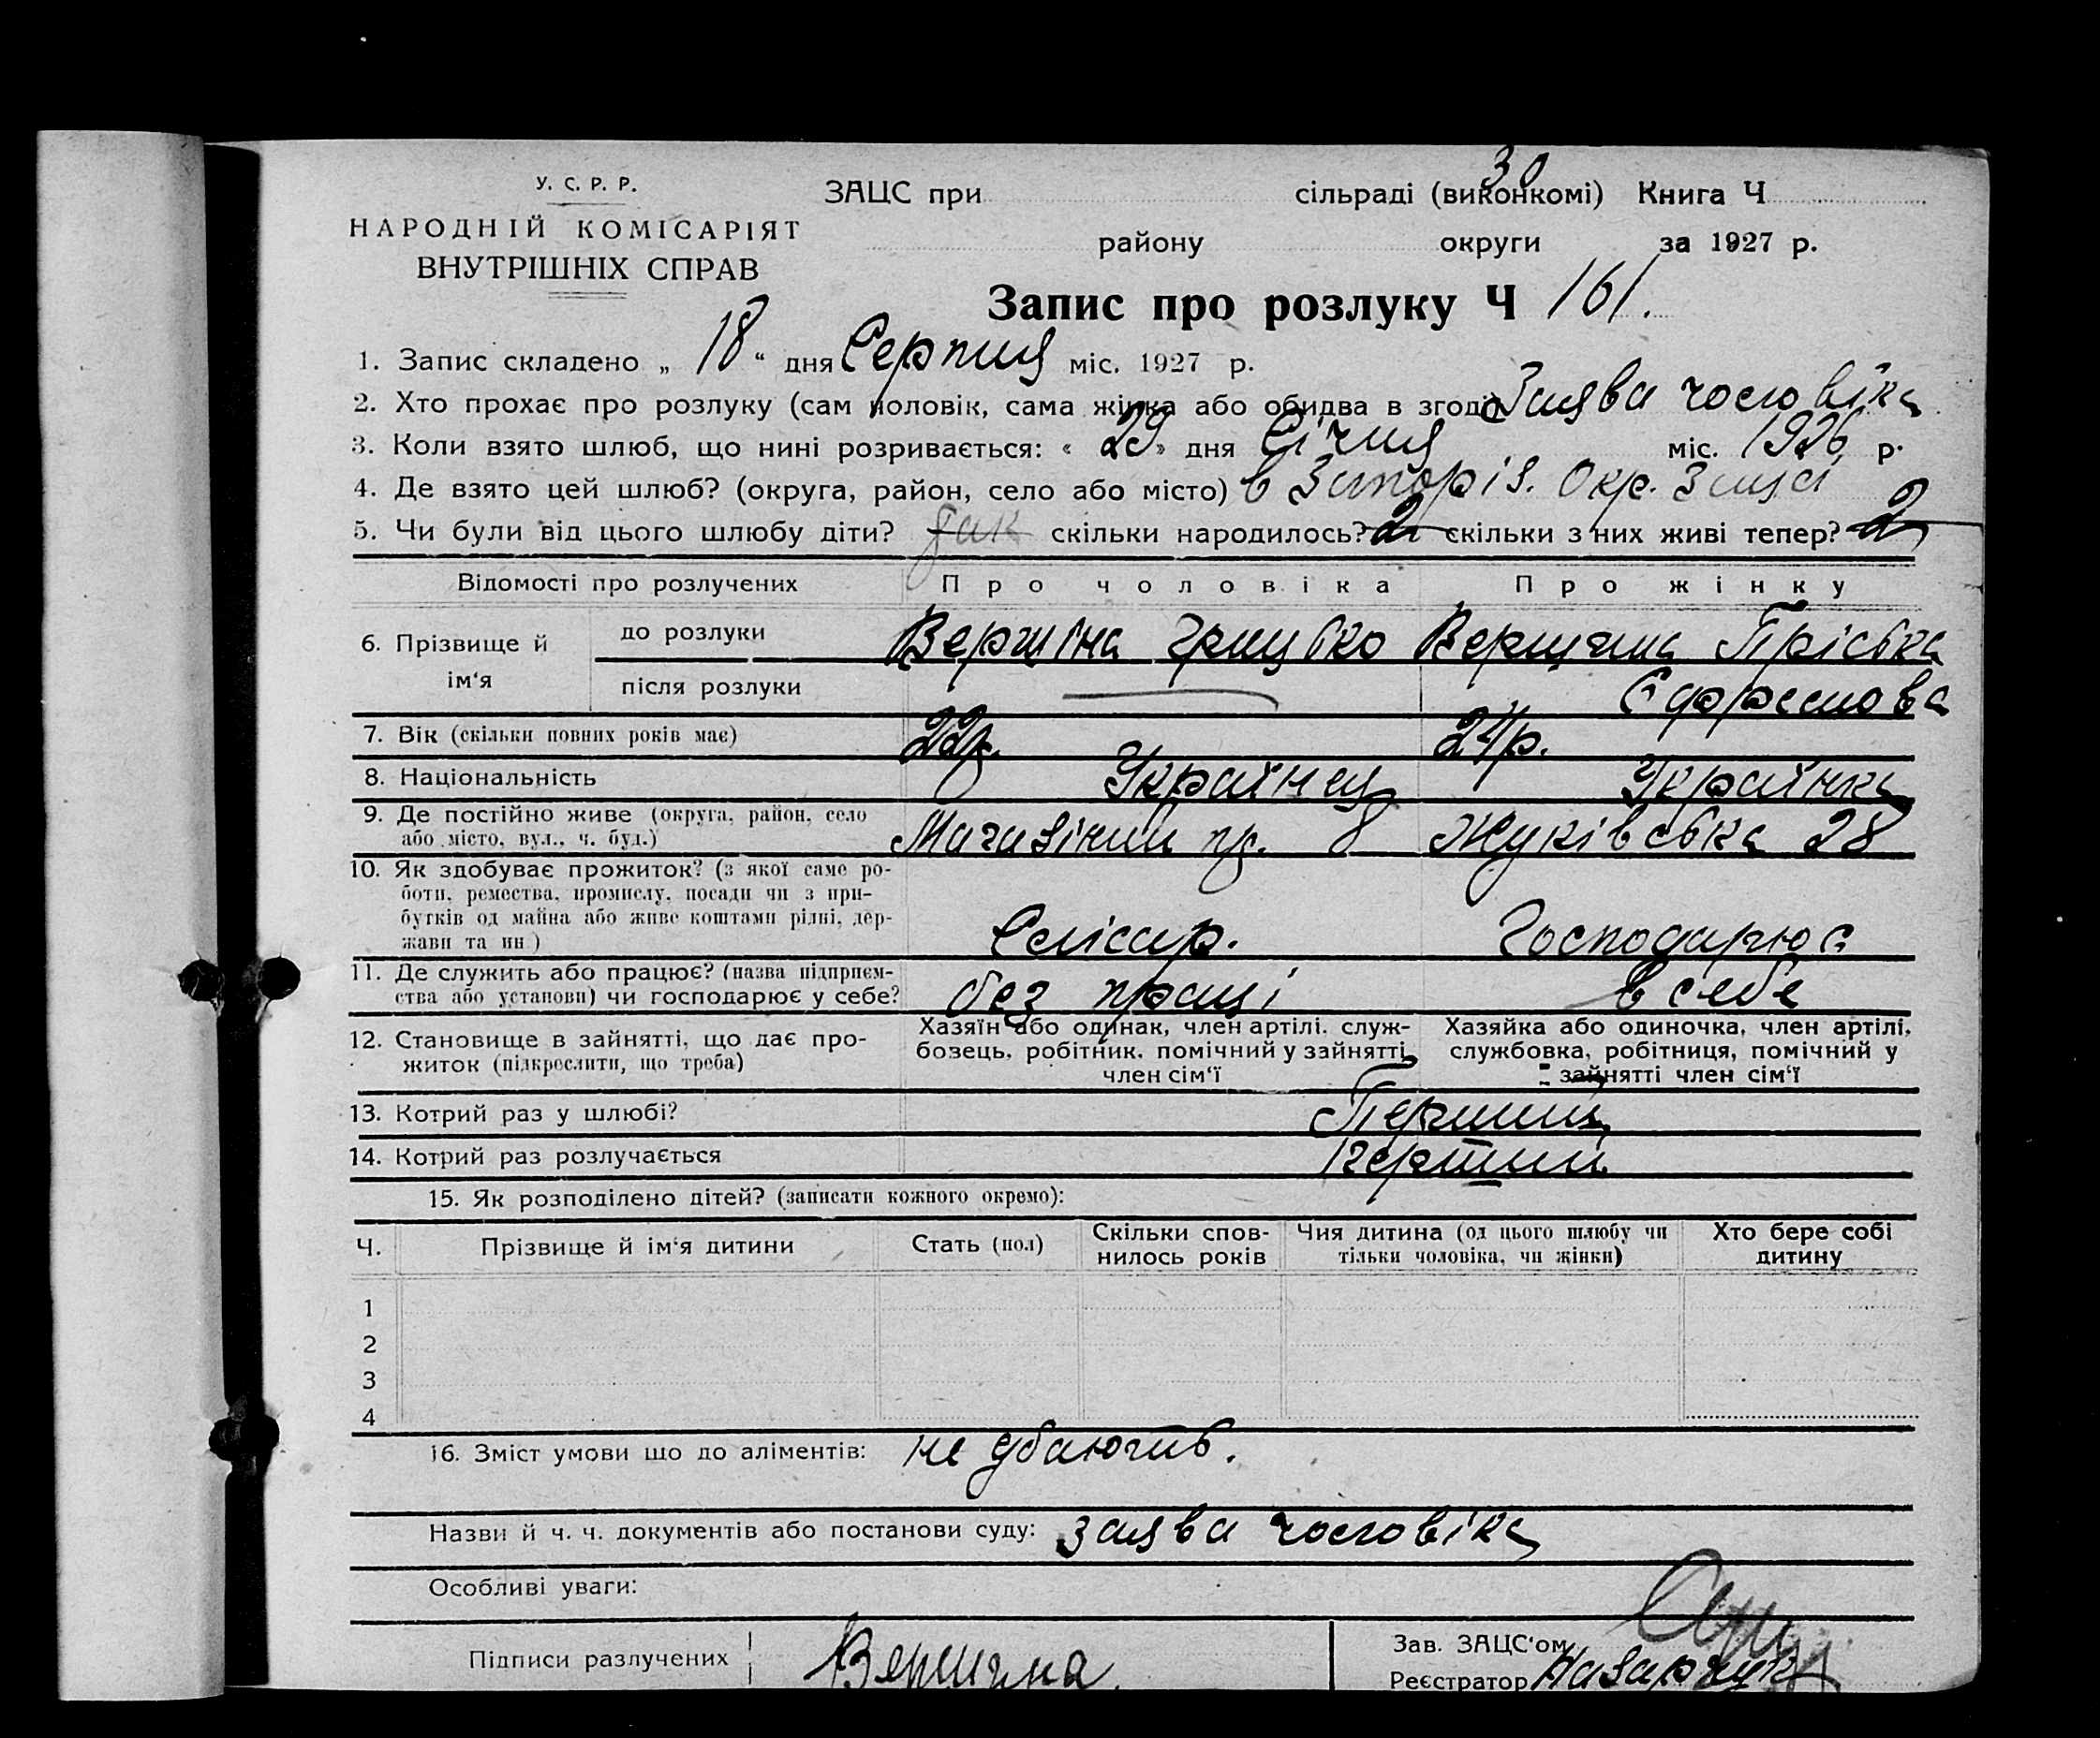 30
У. С. Р. Р.
НАРОДНІЙ КОМІСАРІЯТ
ВНУТРІШНІХ СПРАВ
ЗАЦС при сільраді (виконкомі) Книга Ч
району округи за 1927 р.
Запис про розлуку Ч 161.
1. Запис складено „ 18 “ дня Серпня міс. 1927 р.
2. Хто прохає про розлуку (сам чоловік, сама жінка або обидва в згоді) Заява чоловіка
3. Коли взято шлюб, що нині розривається: « 29 » дня Січня міс. 1926 р.
4. Де взято цей шлюб? (округа, район, село або місто) в Запоріз. Окр. Зацсі
5. Чи були від цього шлюбу діти? так скільки народилось? 2 скільки з них живі тепер? 2
Відомості про розлучених Про чоловіка Про жінку
6. Прізвище й ім‘я
до розлуки Вершина Грицько Вершина Пріська
після розлуки
7. Вік (скільки повних років має) 22р. 24р.
8. Національність Українец Українка
9. Де постійно живе (округа, район, село або місто, вул., ч. буд.) Магазіний пр. 8 Жуківська 28
10. Як здобуває прожиток? (з якої саме ро-
боти, ремества, промислу, посади чи з при-
бутків од майна або живе коштами рідні, дер-
жави та ин ) Слісар. Господарює
11. Де служить або працює? (назва підприєм-
ства або установи) чи господарює у себе? без праці в себе
12. Становище в зайнятті, що дає про-
житок (підкреслити, що треба)
Хазяїн або одинак, член артілі, служ-
бовець, робітник, помічний у зайнятті
член сім‘ї
Хазяйка або одиночка, член артілі,
службовка, робітниця, помічний у
зайнятті член сім‘ї
13. Котрий раз у шлюбі? Перший
14. Котрий раз розлучається перший
15. Як розподілено дітей? (записати кожного окремо):
Ч. Прізвище й ім‘я дитини Стать (пол) Скільки спов-
нилось років Чия дитина (од цього шлюбу чи
тільки чоловіка, чи жінки) Хто бере собі
дитину
1
2
3
4
16. Зміст умови що до аліментів:
Назви й ч. ч. документів або постанови суду: заява чоловіка
Особливі уваги:
Підписи разлучених Вершина
Зав. ЗАЦС‘ом
Реєстратор Назарчук